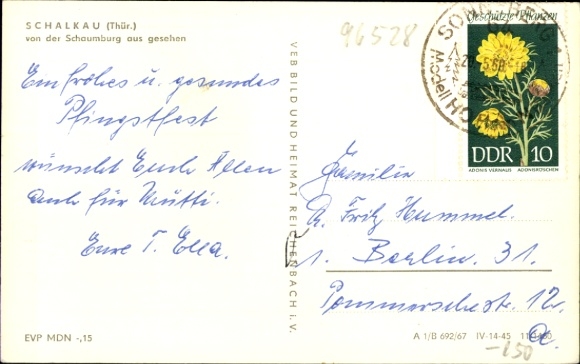 SCHALKAU (Thür.)
von der Schaumburg aus gesehen
96528
Ein frohes u. gesundes
Pfingstfest
wünscht Euch Allen
auch für Mutti.
Eure T. Ella.
EVP MDN -,15
VEB BILD UND HEIMAT REICHENBACH i. V.
Geschützte Pflanzen
DDR 10
ADONIS VERNALIS ADONISRÖSCHEN
SONNEBERG 1
Familie
Fritz Hummel.
1. Berlin. 31.
Pommerschestr. 12.
a.
A 1/B 692/67 IV-14-45
-150